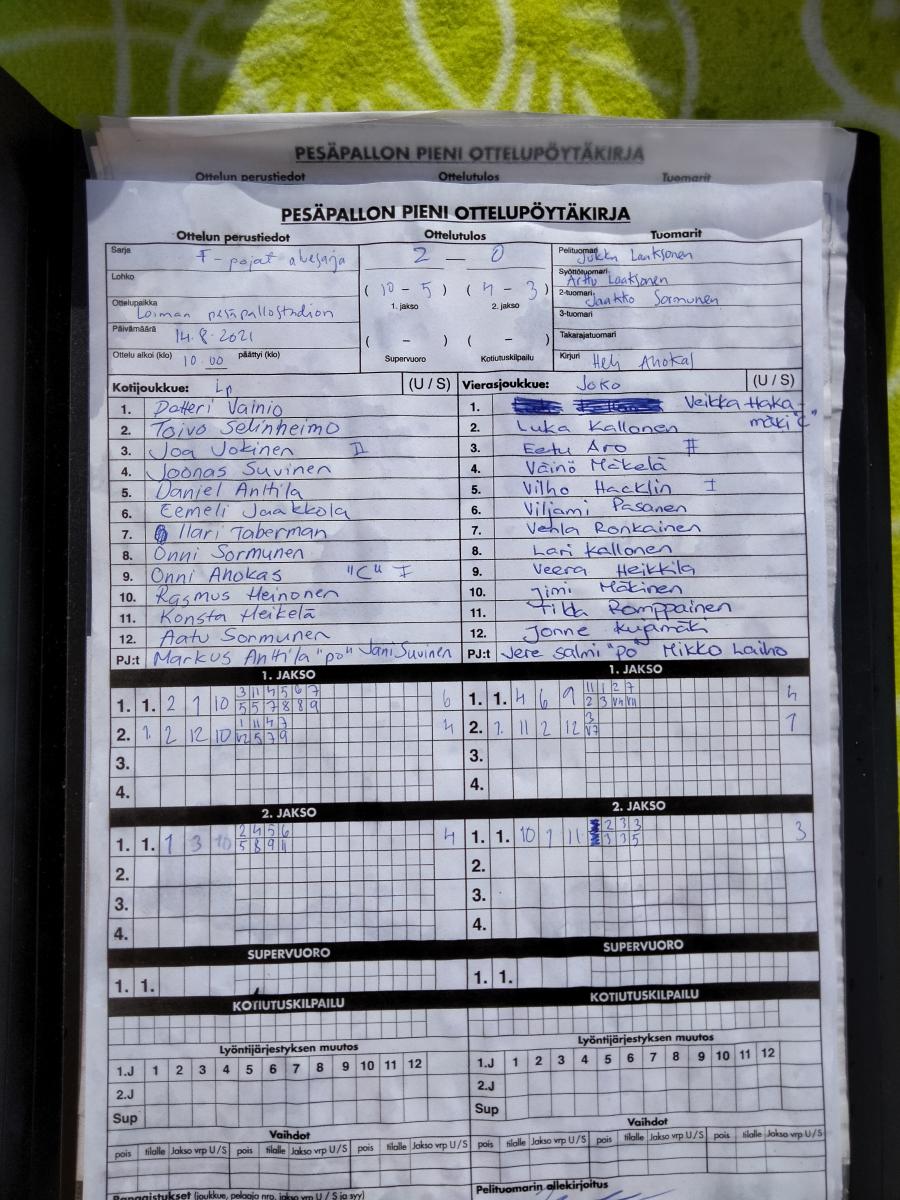 PESÄPALLON PIENI OTTELUPÖYTÄKIRJA
Ottelun perustiedot Ottelutulos Tuomarit
PESÄPALLON PIENI OTTELUPÖYTÄKIRJA
Ottelun perustiedot Ottelutulos Tuomarit
Sarja F-pojat aluesarja 2 — 0 Pelituomari Jukka Laaksonen
Lohko Syöttötuomari Arttu Laaksonen
(10 - 5) (4 - 3) 2-tuomari Jaakko Sormunen
Ottelupaikka Loiman pesäpallostadion 1. jakso 2. jakso 3-tuomari
Päivämäärä 14.8.2021 ( - ) ( - ) Takarajatuomari
Ottelu alkoi (klo) 10.00 päättyi (klo) Supervuoro Kotiutuskilpailu Kirjuri Heli Ahokas
Kotijoukkue: Lp (U / S) Vierasjoukkue: JoKo (U / S)
1. Petteri Vainio 1. Veikka Haka-
mäki "C"
2. Toivo Selinheimo 2. Luka Kallonen
3. Joa Jokinen II 3. Eetu Aro II
4. Joonas Suvinen 4. Väinö Mäkelä
5. Daniel Anttila 5. Vilho Hacklin I
6. Eemeli Jaakkola 6. Viljami Pasanen
7. Ilari Taberman 7. Vehla Ronkainen
8. Onni Sormunen 8. Lari Kallonen
9. Onni Ahokas "C" I 9. Veera Heikkilä
10. Rasmus Heinonen 10. Jimi Mäkinen
11. Konsta Heikelä 11. Tilda Romppainen
12. Aatu Sormunen 12. Jonne Kujamäki
PJ:t Markus Anttila "po" Jani Suvinen PJ:t Jere Salmi "po" Mikko Laiho
1. JAKSO 1. JAKSO
3 11 4 5 6 7 11 1 2 7
1. 1. 2 1 10 5 5 7 8 8 9 6 1. 1. 4 6 9 2 3 4
1 11 4 7 3
2. 1. 2 12 10 5 7 9 4 2. 1. 11 2 12 1
3. 3.
4. 4.
2. JAKSO 2. JAKSO
2 4 5 6 2 3 3
1. 1. 1 3 10 5 8 9 11 4 1. 1. 10 1 11 3 3 5 3
2. 2.
3. 3.
4. 4.
SUPERVUORO SUPERVUORO
1. 1. 1. 1.
KOTIUTUSKILPAILU KOTIUTUSKILPAILU
Lyöntijärjestyksen muutos Lyöntijärjestyksen muutos
1.J 1 2 3 4 5 6 7 8 9 10 11 12 1.J 1 2 3 4 5 6 7 8 9 10 11 12
2.J 2.J
Sup Sup
Vaihdot Vaihdot
pois tilalle Jakso vrp U/S pois tilalle Jakso vrp U/S pois tilalle Jakso vrp U/S pois tilalle Jakso vrp U/S pois tilalle Jakso vrp U/S pois tilalle Jakso vrp U/S
Rangaistukset (joukkue, pelaaja nro, jakso vrp U / S ja syy) Pelituomarin allekirjoitus